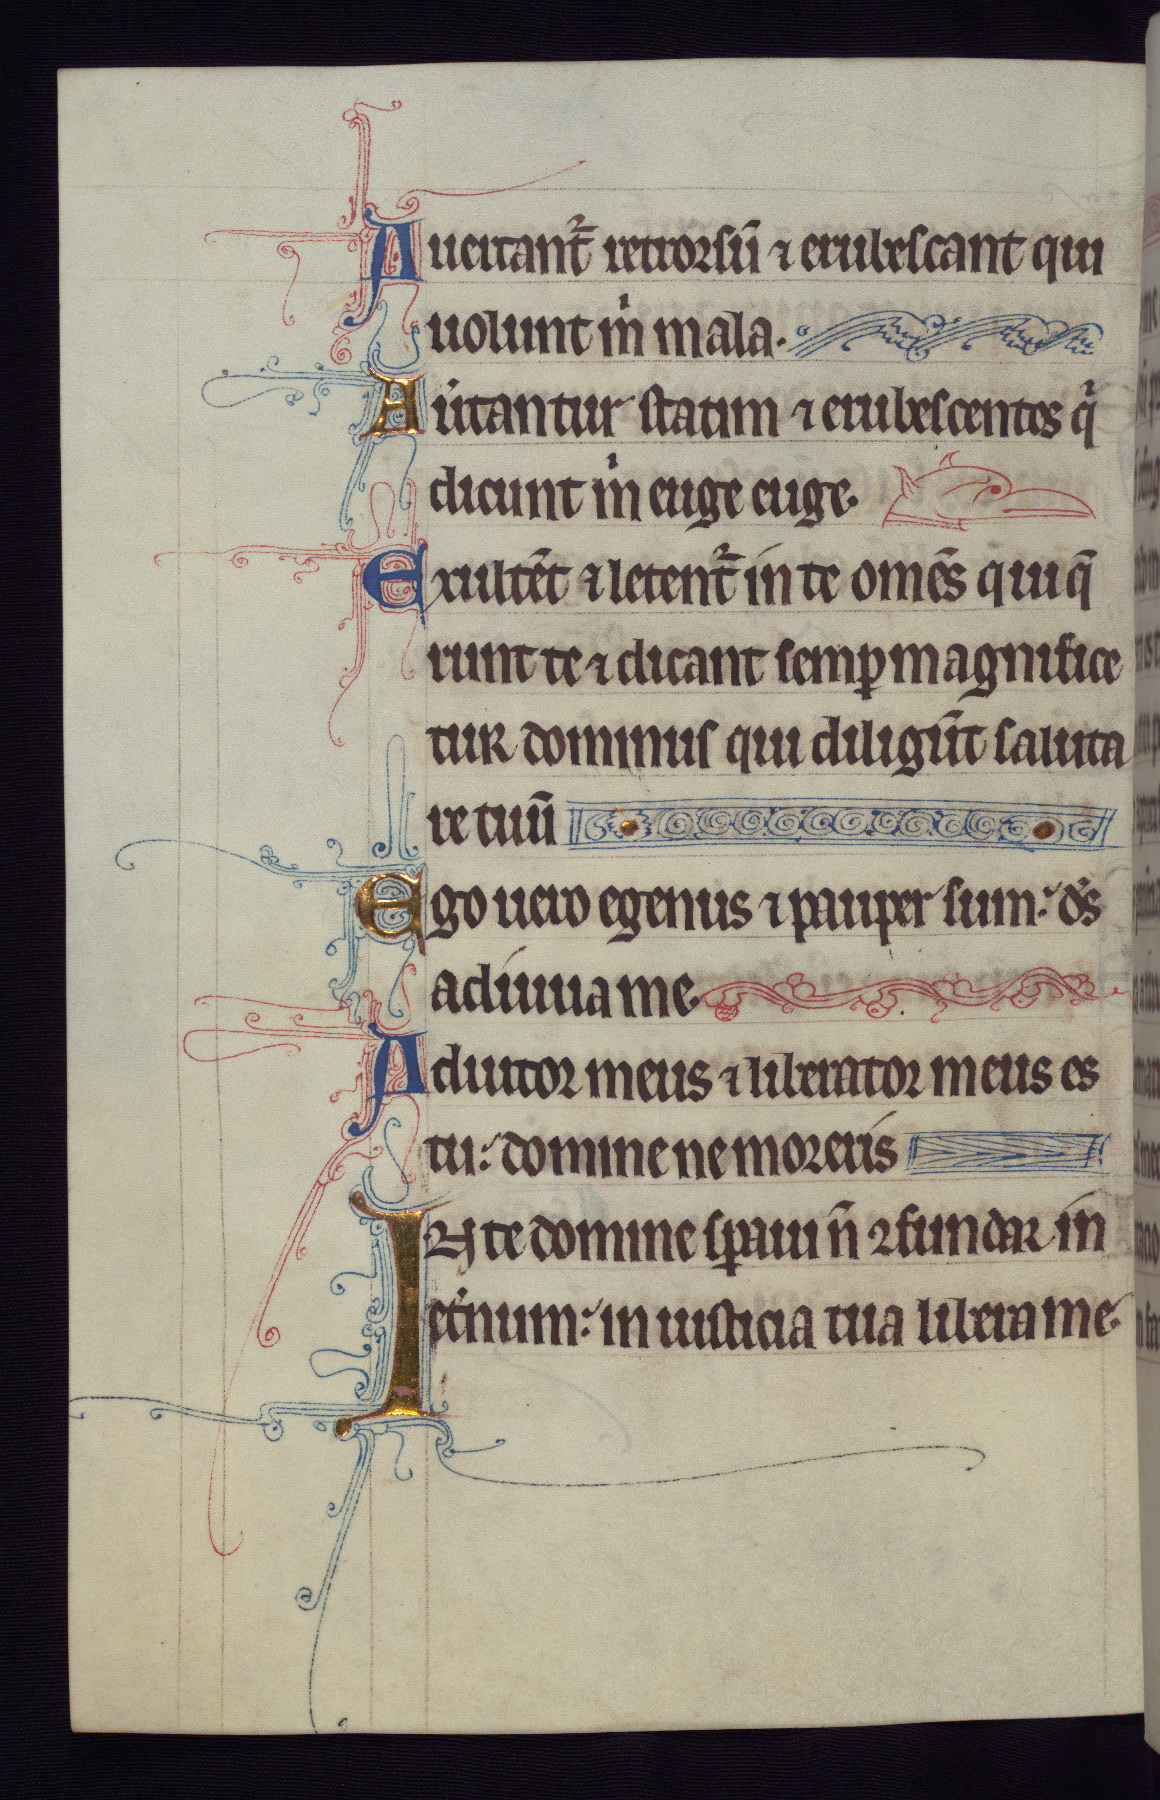 Auertant᷑ retrorsū ⁊ erubescant qui
uolunt m̍ mala.
Au̍tantur statim ⁊ erubescentes q̍
dicunt m̍ euge euge.
Exultēt ⁊ letent᷑ in te omēs qui q̄
runt te ⁊ dicant semꝑ magnifice
tur dominus qui diligūt saluta
re tuū
Ego uero egenus ⁊ pauper sum: ds̄
adiuua me.
Adiutor meus ⁊ liberator meus es
tu: domine ne moreris
IN te domine sꝑaui n̄ ꝯfundar in
et̍num: in iusticia tua libera me.